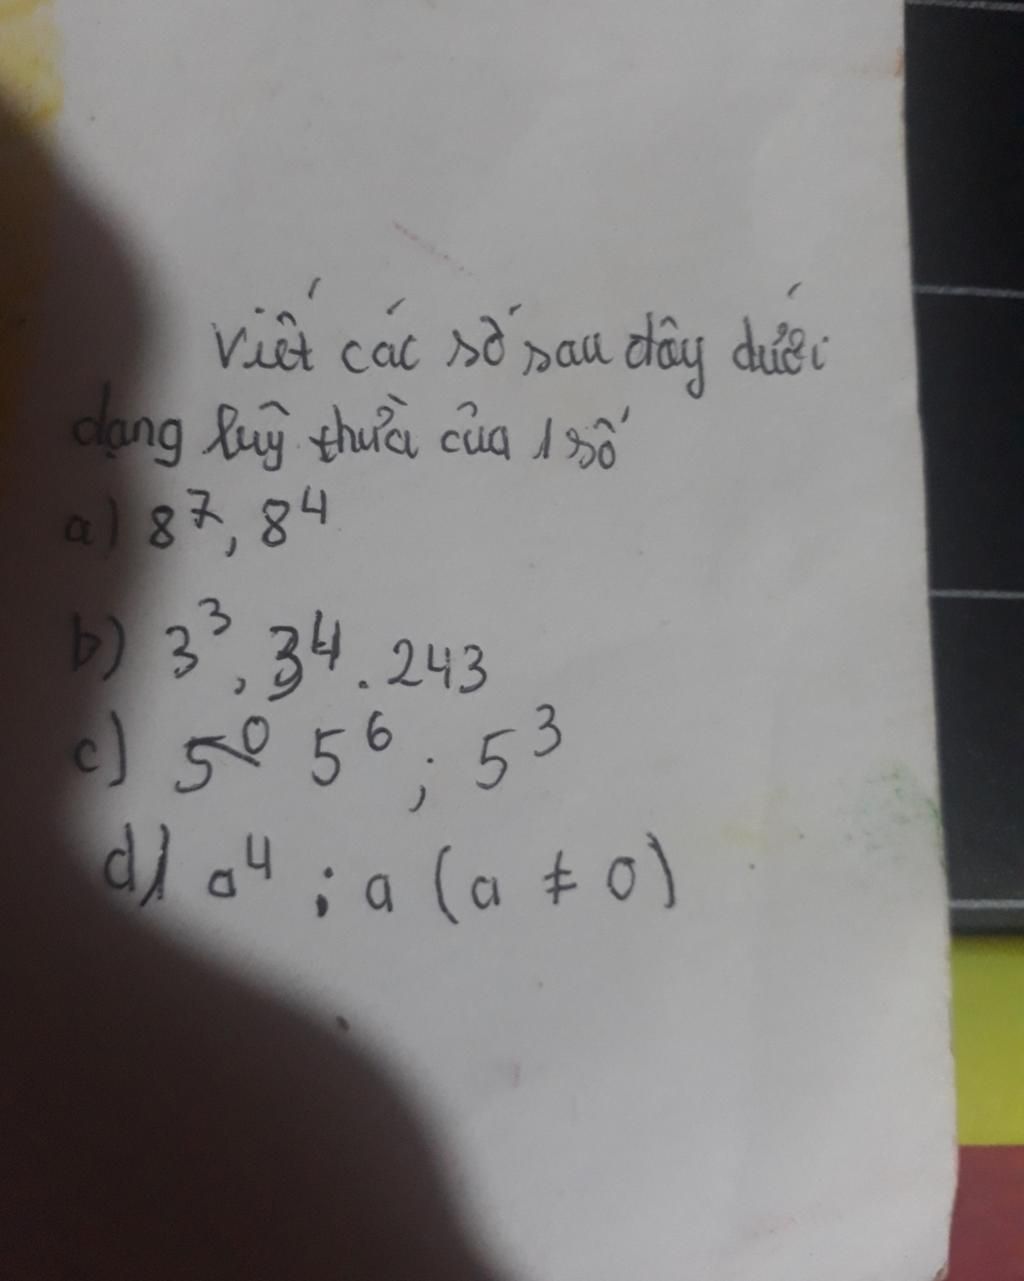 Viết các số sau đây dưới
dạng luỹ thừa của 1 số
a) 8⁷, 8⁴
b) 3³, 3⁴ . 243
c) 5⁰ 5⁶ ; 5³
d) a⁴ : a (a ≠ 0)